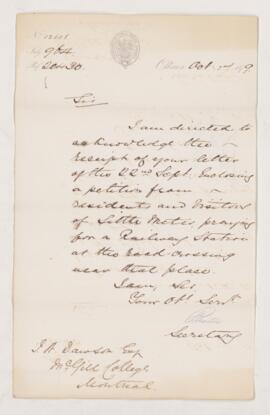 No 12101
Subj 964
Ref 20430
Ottawa Oct 2nd 1879
Sir
I am directed to
acknowledge the
receipt of your letter
of the 22nd Sept. Enclosing
a petition from
residents and visitors
of Little Metis, praying
for a Railway Station
at the road crossing
near that place.
I am, Sir
Your Obt Servt
Secretary
J. W. Dawson Esq
McGill College
Montreal